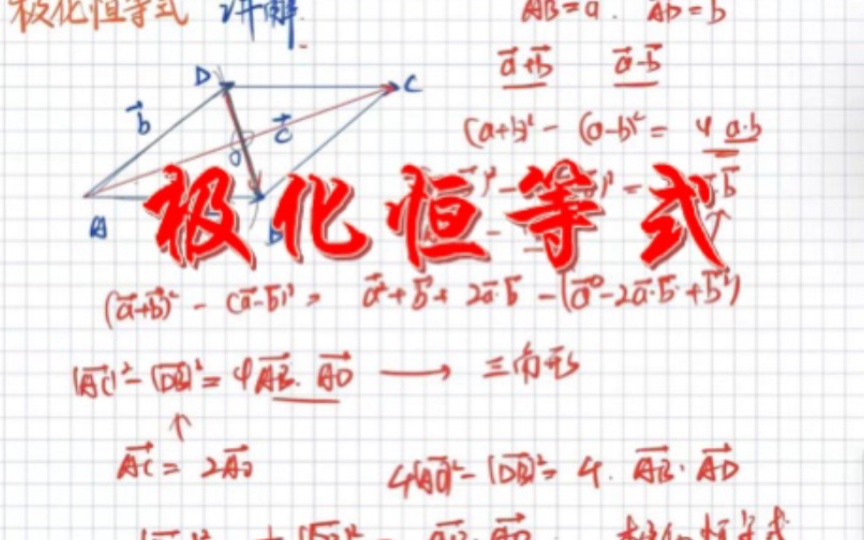 极化恒等式 讲解.
AB=a. AD=b
D C
b⃗ c⃗
a⃗+b⃗ a⃗-b⃗
O
(a+b)² - (a-b)² = 4 a·b
A
极化恒等式
(a⃗+b⃗)² - (a⃗-b⃗)² = a⃗²+b⃗²+ 2a⃗·b⃗ -(a⃗²-2a⃗·b⃗+b⃗²)
|AC⃗|² - |DB⃗|² = 4AB⃗·AD⃗ → 三角形
↑
AC⃗ = 2AO⃗ 4|AO⃗|² - |DB⃗|² = 4·AB⃗·AD⃗